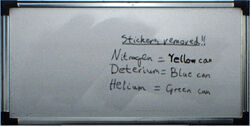 Stickers removed!!
Nitrogen = Yellow can
Deterium = Blue can
Helium = Green can